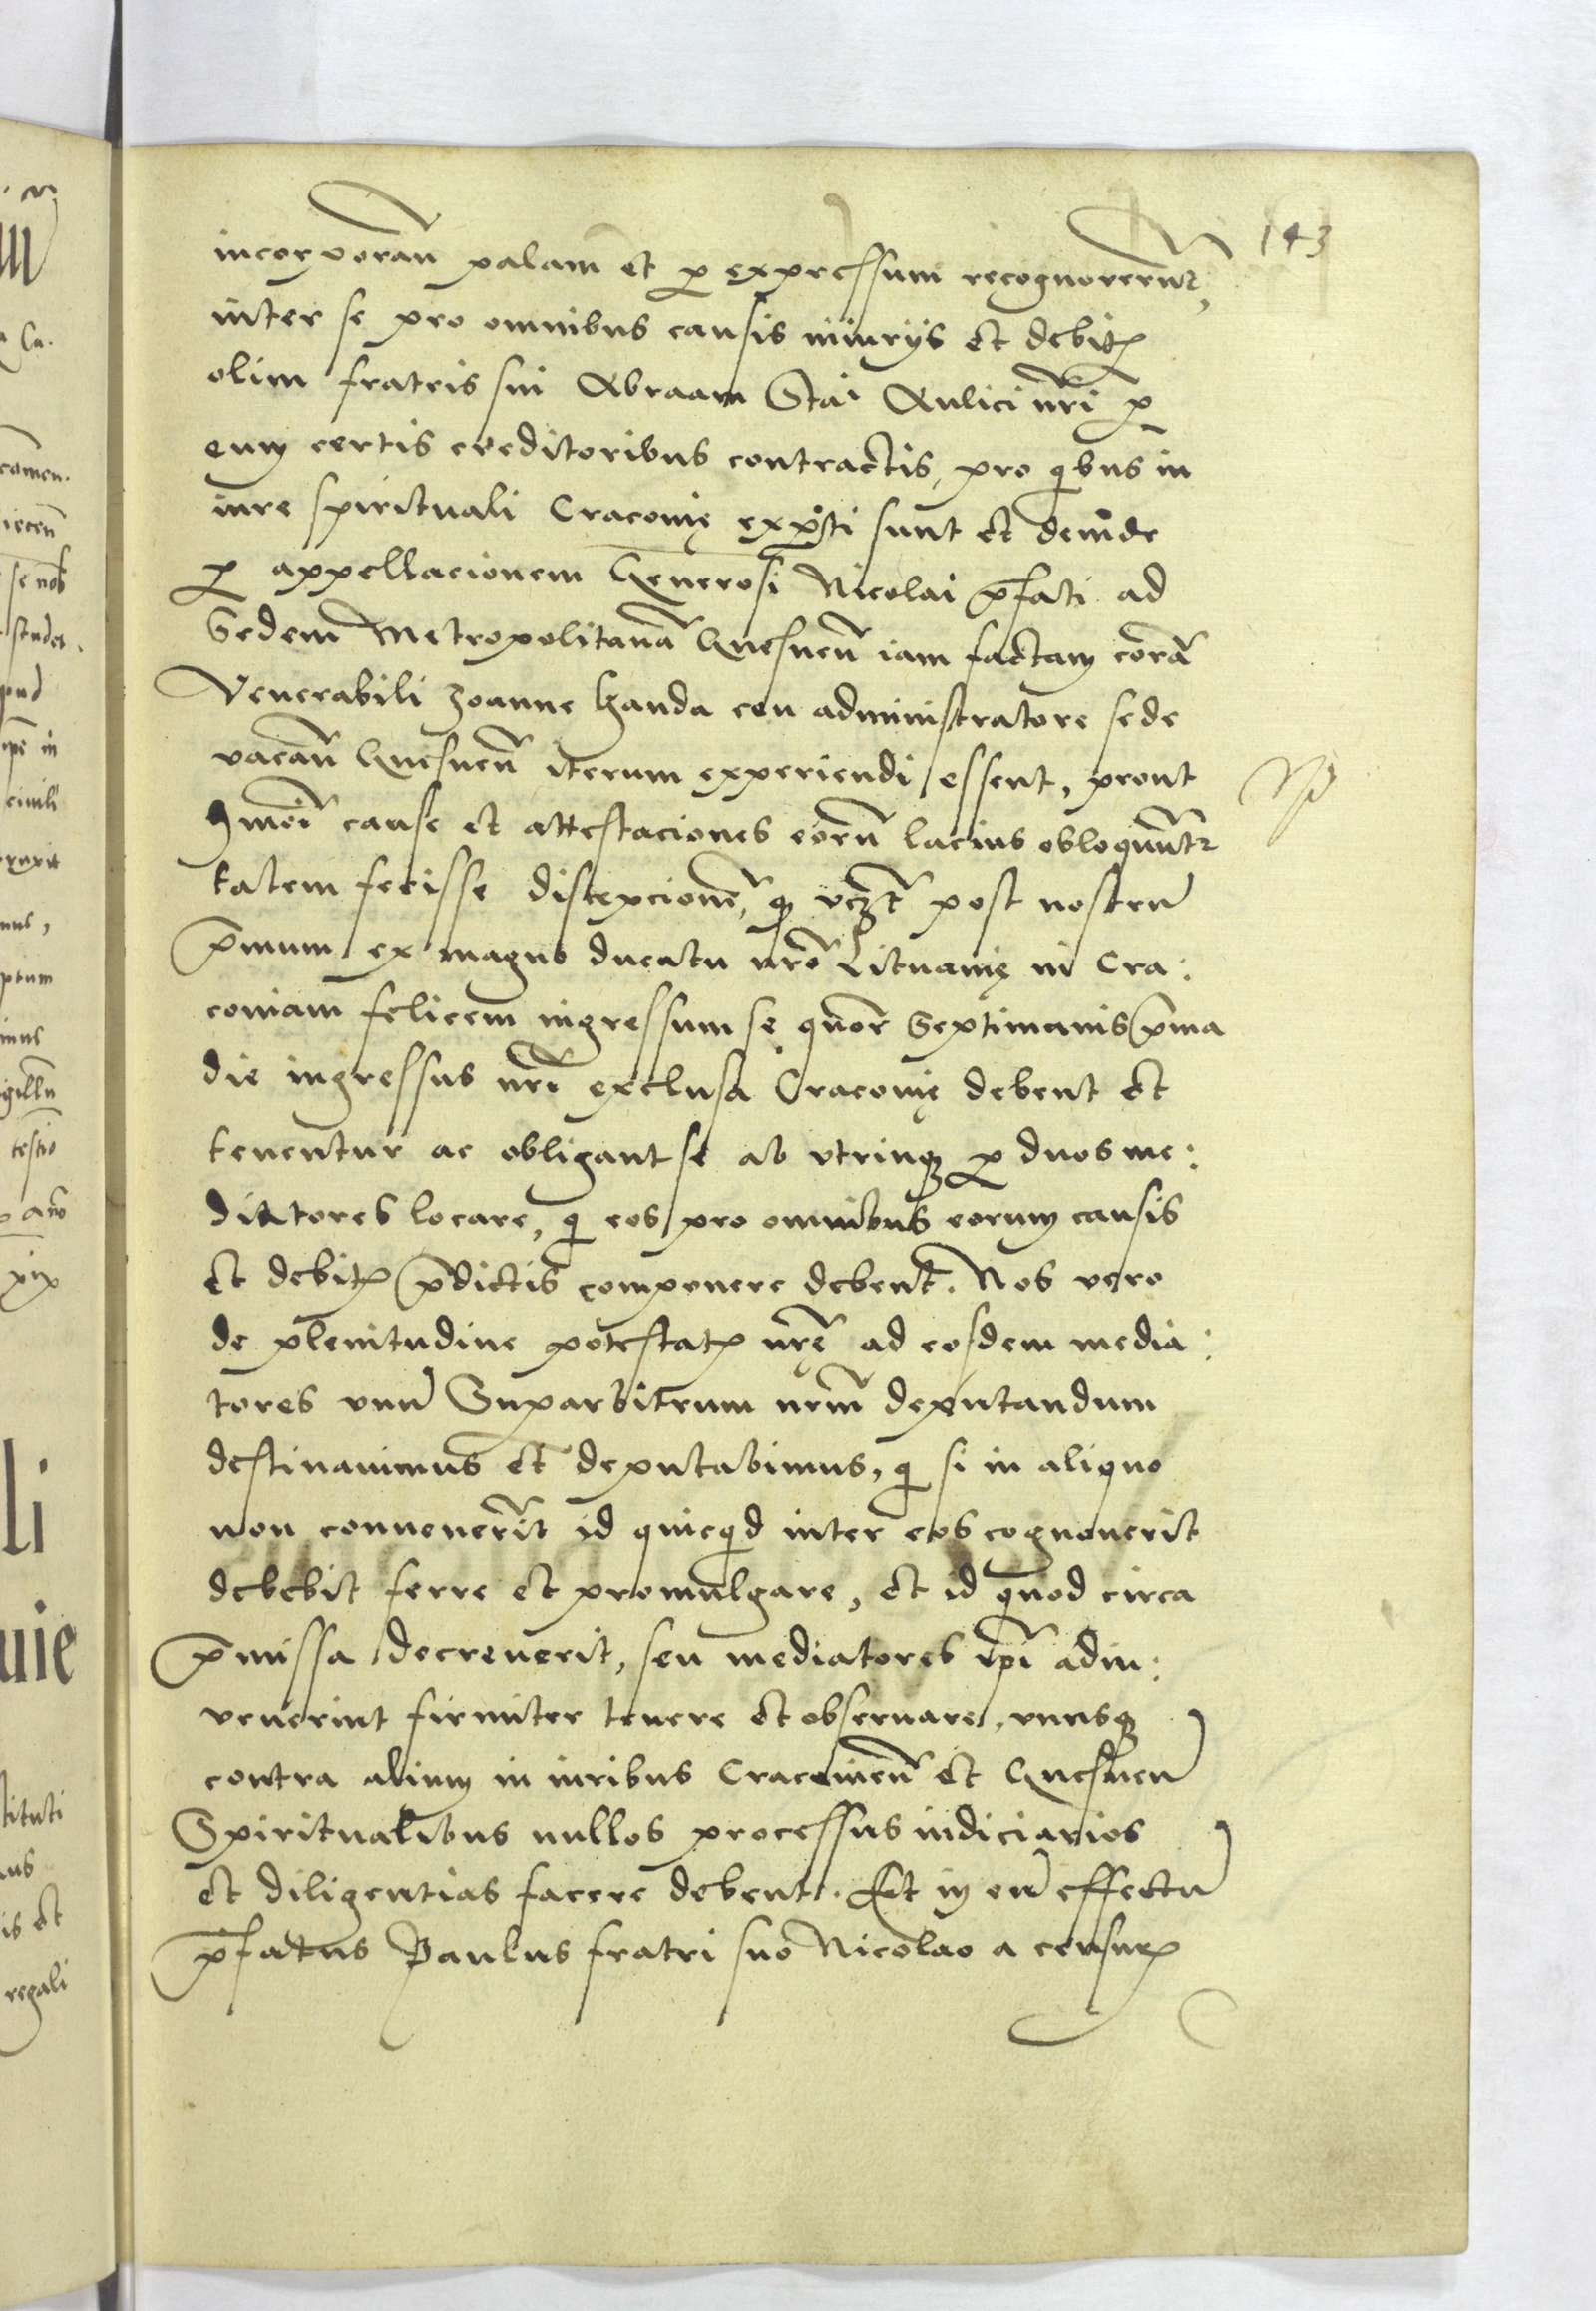 143
incorporan̄ palam et ꝑ expressum recognoverūt,
inter se pro omnibus causis iniurijs et debitꝭ
olim fratris sui Abraam Stai Aulici nr̄i ꝑ
eum certis creditoribus contractis, pro qibus in
iure spirituali Cracovię exp̄ti sunt et deinde
ꝑ appellacionem Generosi Nicolai p̄fati ad
Sedem Metropolitanā Gnesnen̄ iam factam corā
Venerabili Joanne Handa ceu administratore sede
vacan̄ Gnesnen̄ iterum experiendi essent, prout
hmōi cause et attestaciones eorū lacius obloquunt̄r
talem fecisse discepcionē, qꝫ vcꝫt post nostrū
p̄mum ex magno ducatu nrō Lituanię in Cra:
coviam felicem ingressum se quōr Septimanis p̄ma
die ingressus nr̄i exclusa Cracovię debent et
tenentur ac obligant se ab utrinqꝫ ꝑ duos me:
diatores locare, qi eos pro omnibus eorum causis
et debitꝭ p̄dictis componere debent. Nos vero
de plenitudine potestatꝭ nr̄ę ad eosdem media:
tores unū Suparbitrum nr̄m deputandum
destinavimus et deputabimus, qi si in aliquo
non convenerīt id quicqid inter eos cognoverit
debebit ferre et promulgare, et id quod circa
p̄missa decreverit, seu mediatores ip̄i adin:
venerint firmiter tenere et observare, unusqꝫ
contra alium in iuribus Cracovien̄ et Gnesnen̄
Spiritualibus nullos processus iudiciarios
et diligentias facere debent. Et in eū effectū
p̄fatus Paulus fratri suo Nicolao a censurꝭ